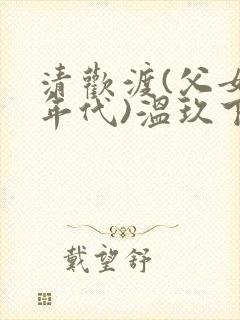 清歡渡(父女
年代)温玖下
戴望舒